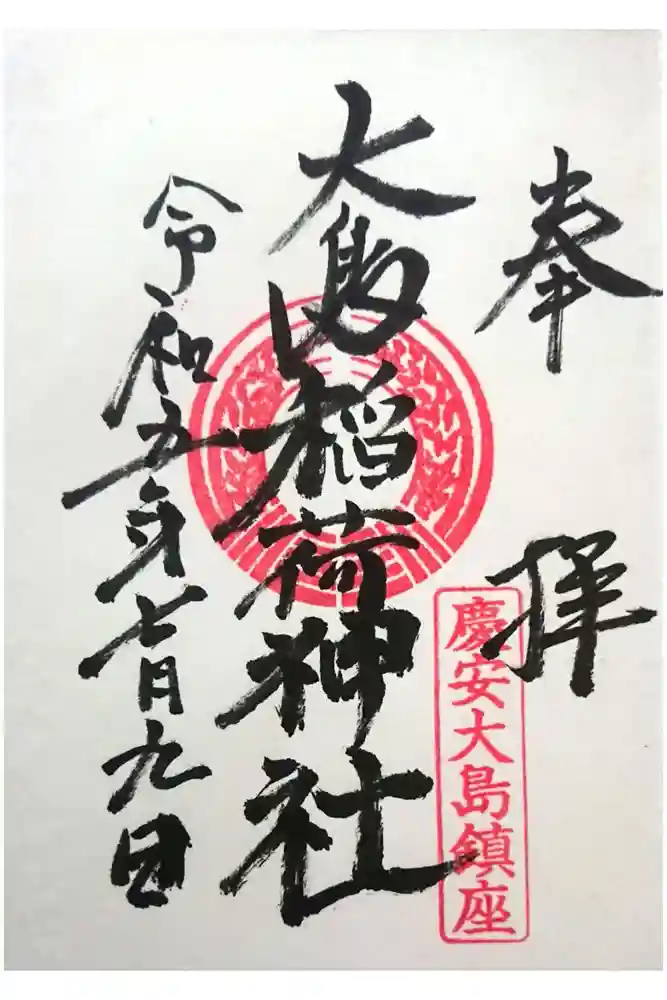 奉拝
慶安大島鎮座
大島稲荷神社
令和五年七月九日